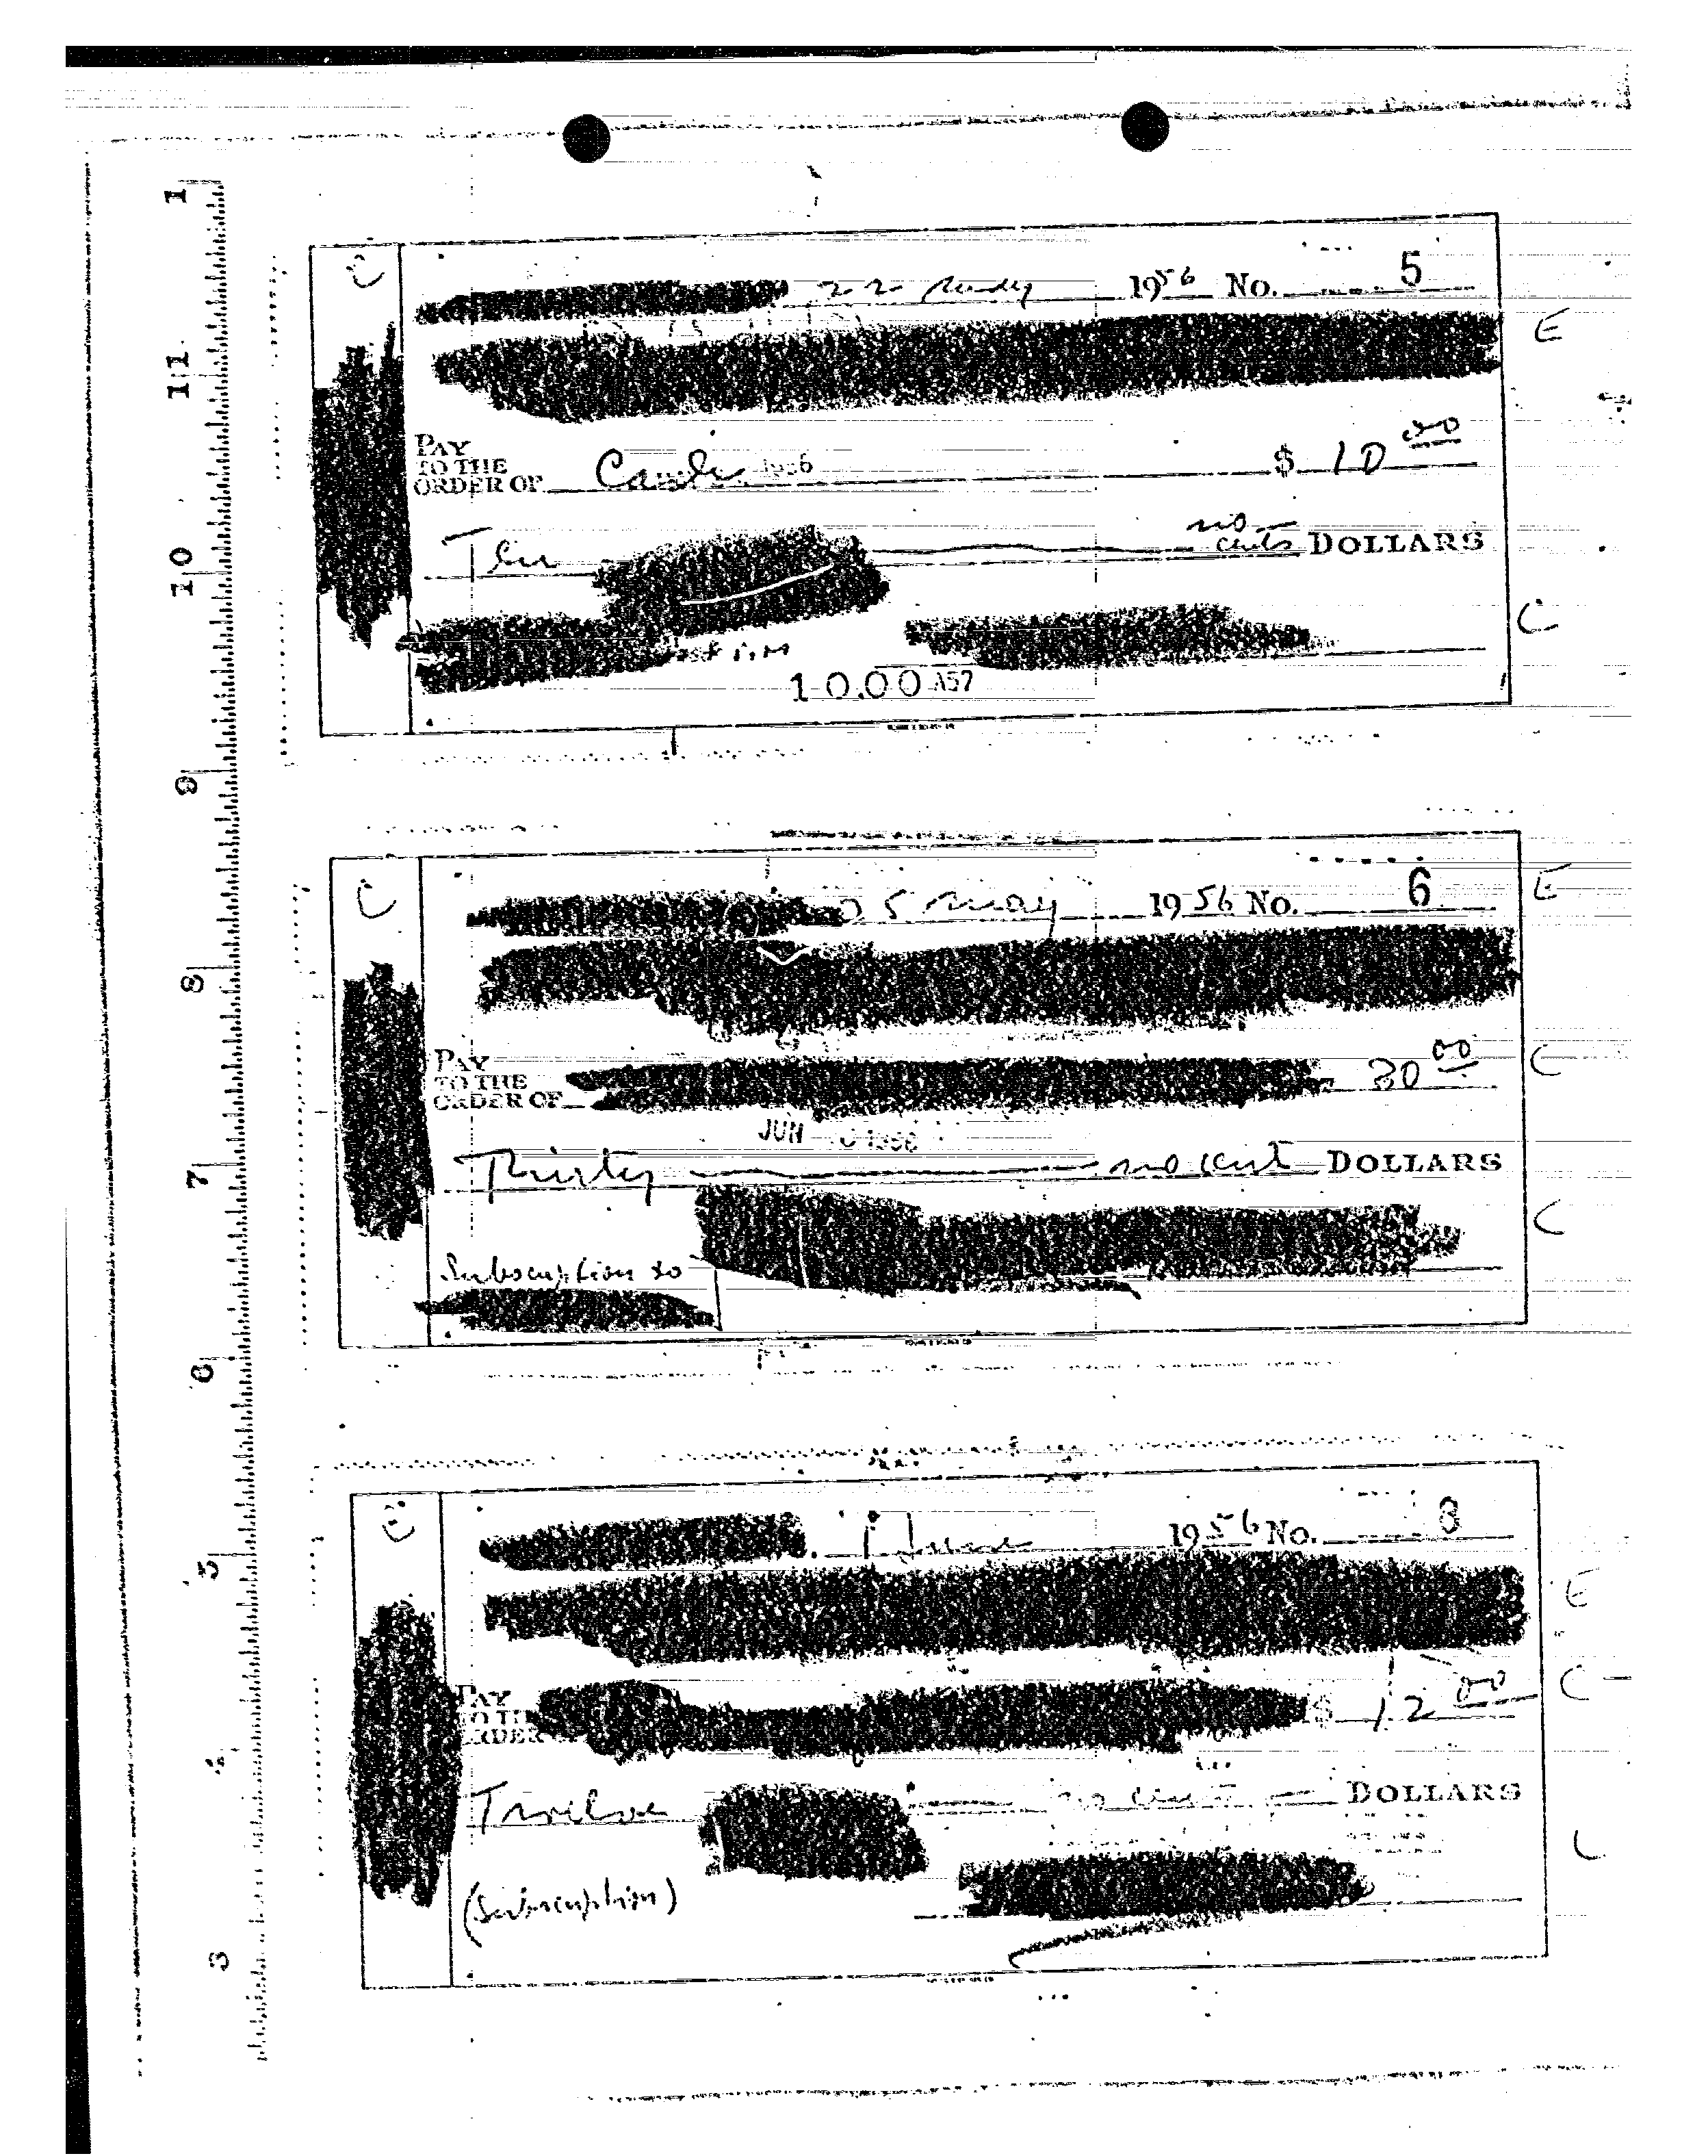 1
11
10
9
8
7
6
5
3
C
22 May 1956 No. 5
E
PAY
TO THE
ORDER OF Cash $ 10 00
Ten no cents DOLLARS
C
10.00 A57
C
May 1956 No. 6
E
PAY
TO THE
ORDER OF 30 00
C
JUN 1956
Thirty no cent DOLLARS
C
Subscription to
C
1 June 1956 No. 8
E
PAY
TO TH
ORDER $ 12 00
C
Twelve no cent DOLLARS
C
(Subscription)